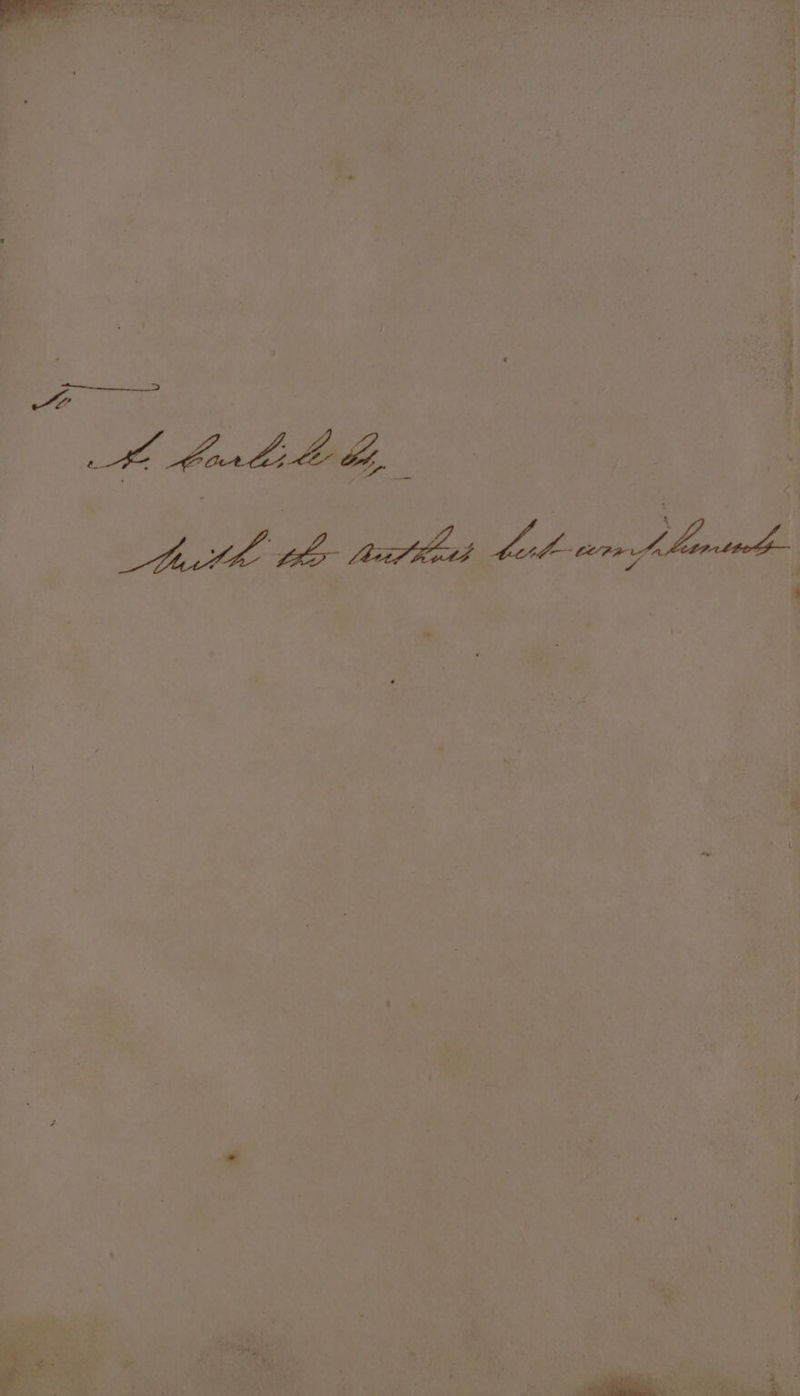 To
A. Carlisle Esq.
With the Authors best compliments